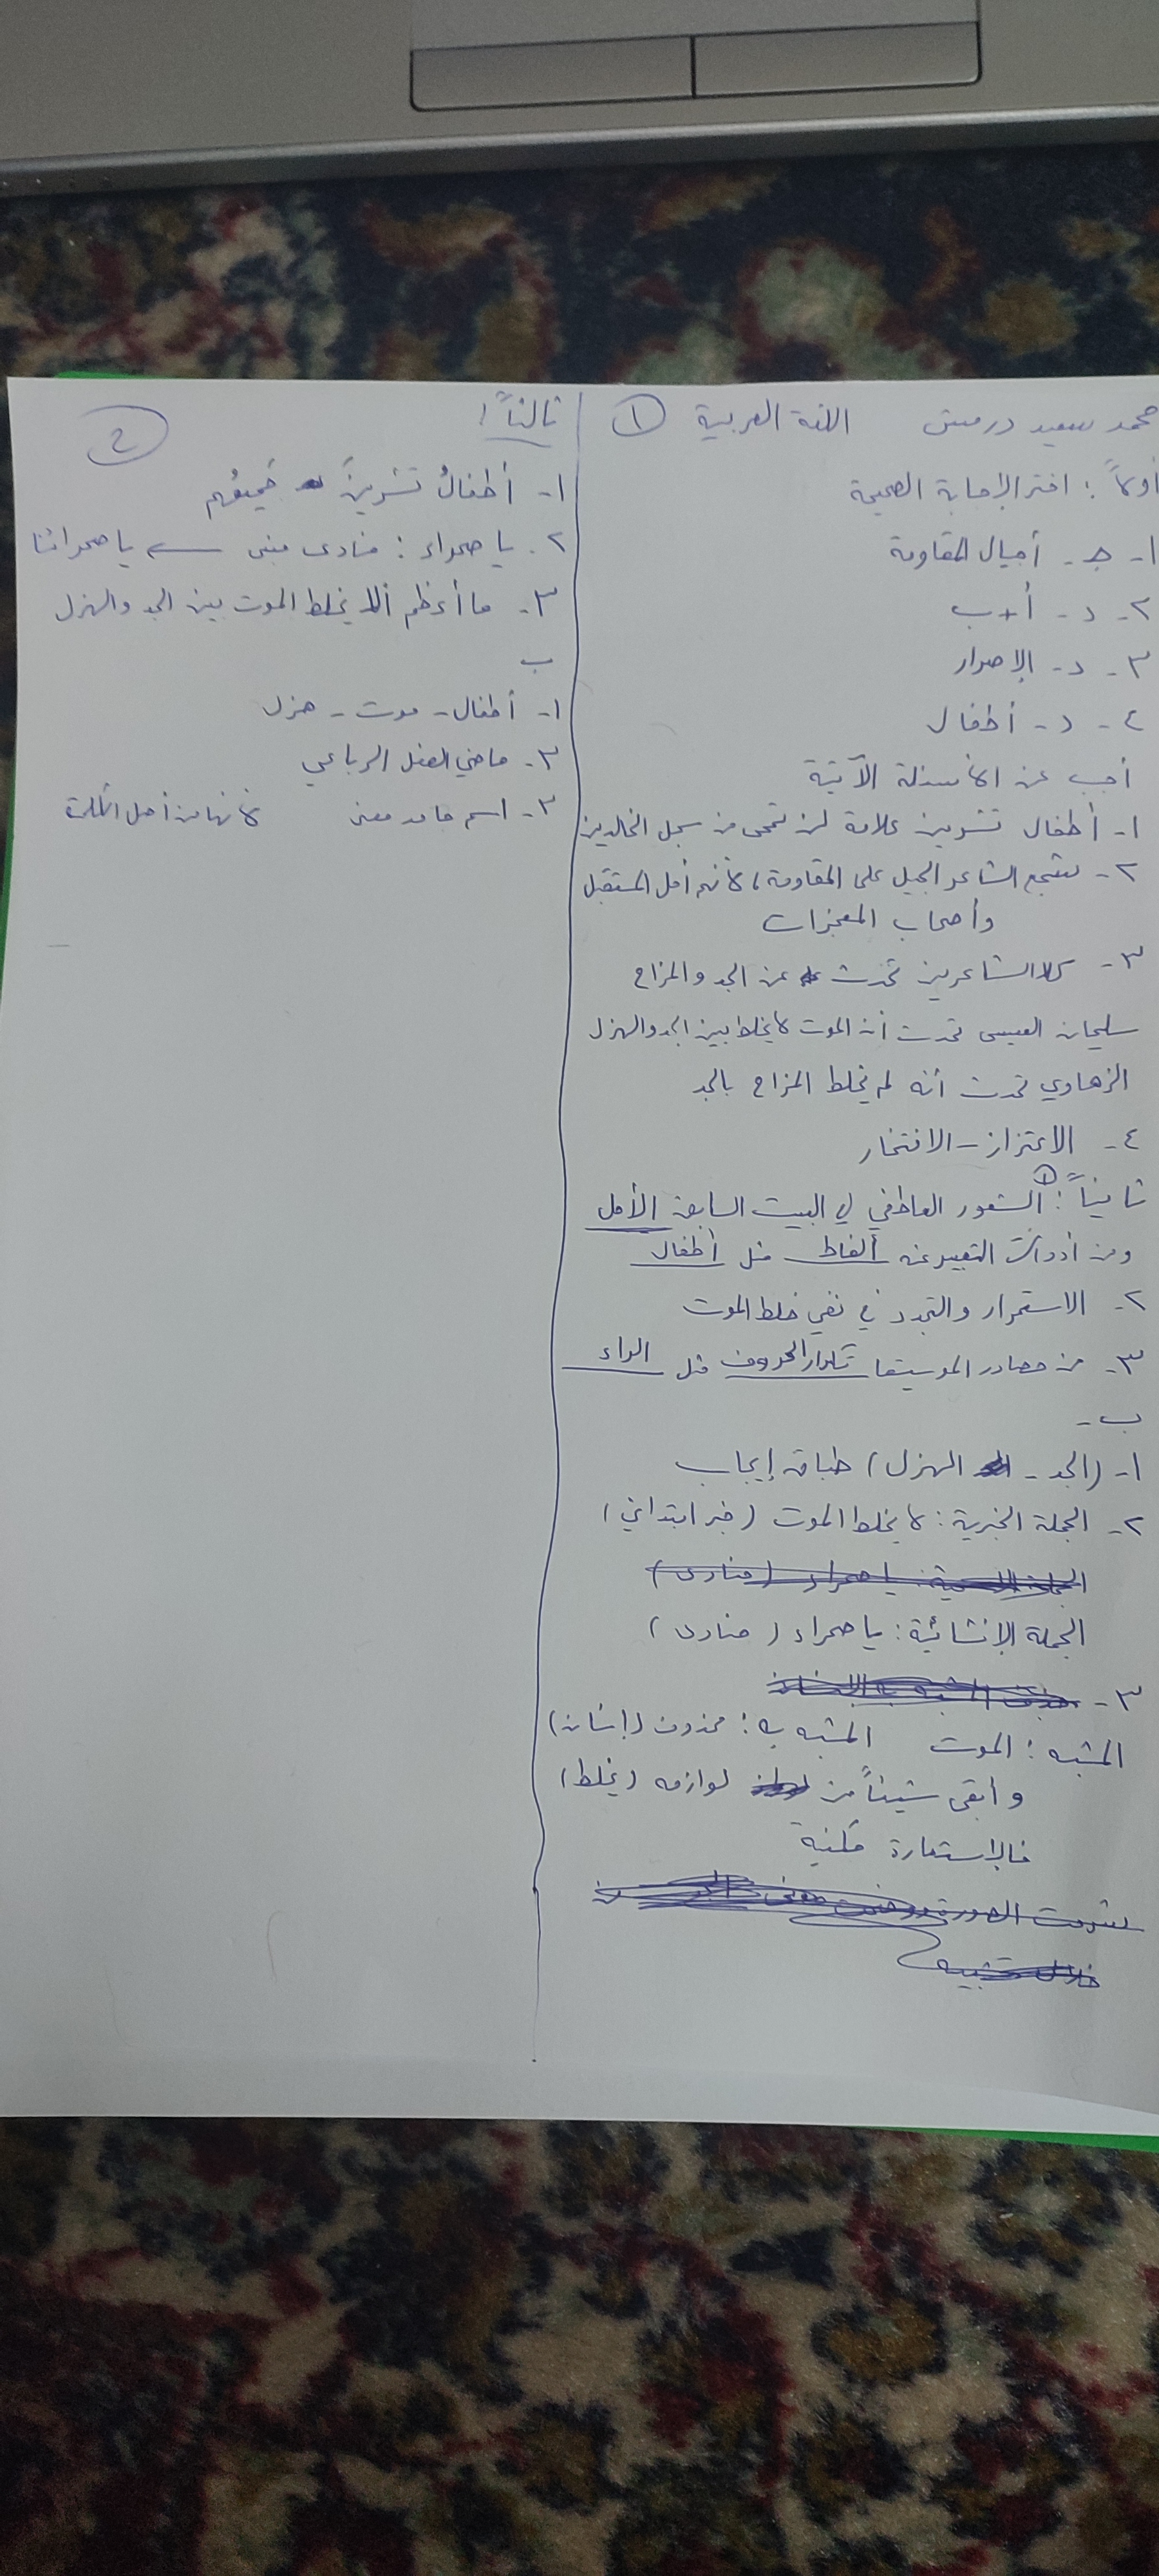 محمد سعيد درمش اللغة العربية ١
أولاً : اختر الإجابة الصحيحة
١- جـ - أجيال المقاومة
٢- د - أ + ب
٣- د - الإصرار
٤- د - أطفال
أجب عن الأسئلة الآتية
١- أطفال تشرين علامة لن تمحى من سجل الخالدين
٢- يشجع الشاعر الجيل على المقاومة، لأنهم أمل المستقبل
وأصحاب المعجزات
٣- كلا الشاعرين تحدث عن الجد والمزاح
سليمان العيسى تحدث أن الموت لا يخلط بين الجد والهزل
الزهاوي تحدث أنه لم يخلط المزاح بالجد
٤- الاعتزاز - الافتخار
ثانياً : ١ الشعور العاطفي في البيت السابع الأمل
ومن أدوات التعبير عنه ألفاظ مثل أطفال
٢- الاستمرار والتجدد في نفي خلط الموت
٣- من مصادر الموسيقا تكرار الحروف مثل الراء
ب -
١- (الجد - الهزل) طباق إيجاب
٢- الجملة الخبرية : لا يخلط الموت (خبر ابتدائي)
الجملة الإنشائية : يا صحراء (منادى)
٣-
المشبه : الموت المشبه به : محذوف (إنسان)
وأبقى شيئاً من لوازمه (يخلط)
فالاستعارة مكنية
ثالثاً : ٢
١- أطفالُ تشرينَ جميعُهم
٢- يا صحراء : منادى مبني ← يا صحراءنا
٣- ما أعظم ألا يخلط الموت بين الجد والهزل
ب
١- أطفال - موت - هزل
٢- ماضي الفعل الرباعي
٣- اسم جامد معنى لأنها من أصل الكلمة